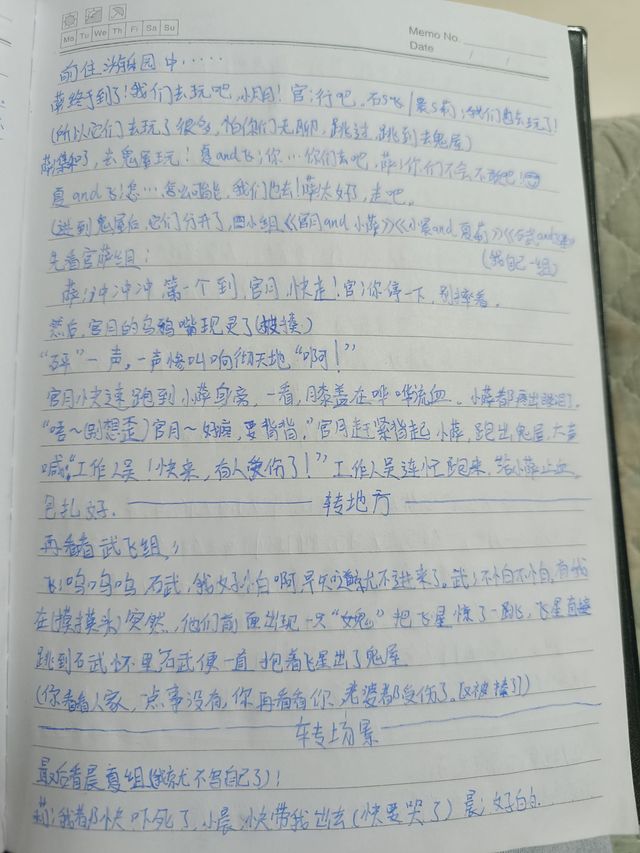 Memo No.
Mo Tu We Th Fr Sa Su
Date / /
前往游乐园中·····
萨:终于到了!我们去玩吧,小月月!官:行吧。石5飞/晨5莉:我们也去玩了!
(所以它们去玩了很多,怕你们无聊,跳过,跳到去鬼屋)
萨:集合了,去鬼屋玩!夏and飞:你…你们去吧,萨:你们不会不敢吧!
夏and飞:怎…怎么可能,我们也去!萨:太好了,走吧。
(进到鬼屋后,它们分开了,四小组《官月and小萨》《小晨and夏莉》《石武and飞星》
先看官萨组: (我自己一组)
萨:冲冲冲第一个到,官月,快走!官:你停一下,别摔着。
然后,官月的乌鸦嘴现灵了(被揍)
“砰”一声,一声惨叫响彻天地“啊!”
官月小快速跑到小萨身旁,一看,膝盖在哗哗流血。小萨都疼出眼泪了。
“唔~(别想歪)官月~好痛,要背背。”官月赶紧背起小萨,跑出鬼屋,大声
喊“工作人员!快来,有人受伤了!”工作人员连忙跑来,给小萨止血
包扎好. 转地方
再看看武飞组:
飞:呜呜呜,石武,我好怕啊,早知道就不进来了。武:不怕不怕,有我
在(摸摸头)突然,他们前面出现一只“女鬼”把飞星惊了一跳,飞星直接
跳到石武怀里石武便一直抱着飞星出了鬼屋
(你看看人家,一点事没有,你再看看你,老婆都受伤了。[又被揍了])
转场景
最后看晨夏组(我就不写自己了):
莉:我都快吓死了,小晨,快带我出去(快要哭了)晨:好好